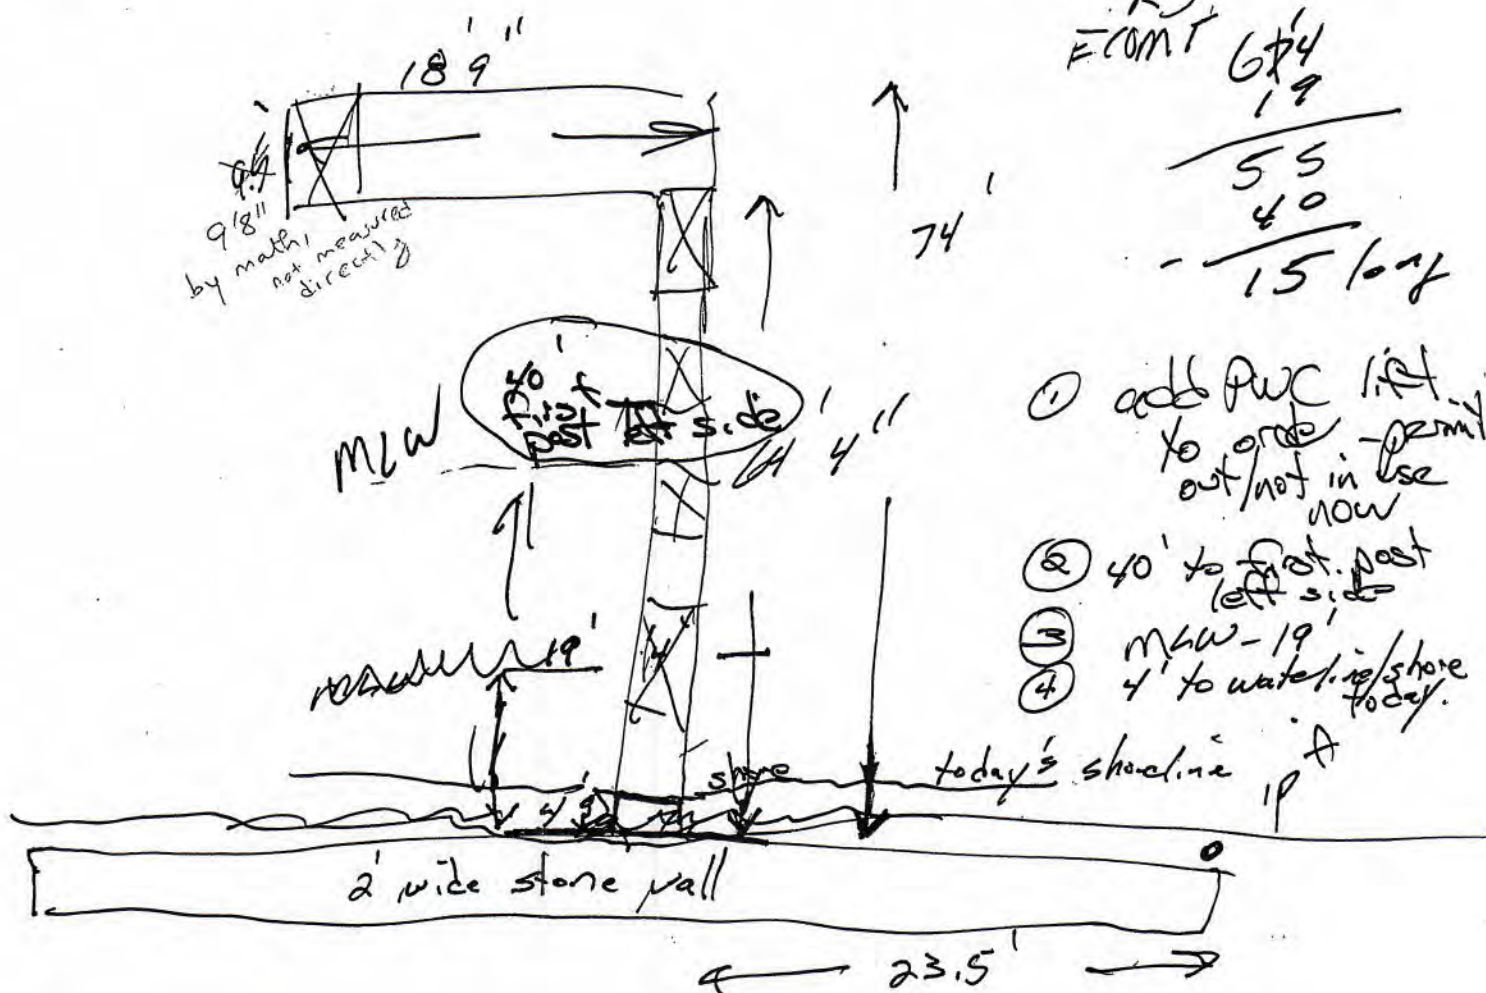 18' 9"
9'8"
by math,
not measured
directly
74'
19
55
40
- 15 long
40'
first
post left side
MLW
64' 4"
19'
① add PWC lift
to order - permit
out/not in use
now
② 40' to first post
left side
③ MLW - 19'
④ 4' to waterline/shore
today.
4'
shore
today's shoreline
IP
2' wide stone wall
23.5'